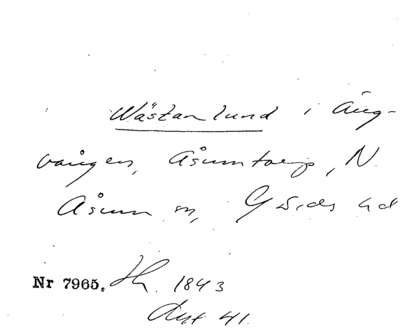 Wästanlund i Äng-
vången, Åsumtorp, N.
Åsum sn, Gärds hd
Nr 7965. Hh. 1843
Akt 41.